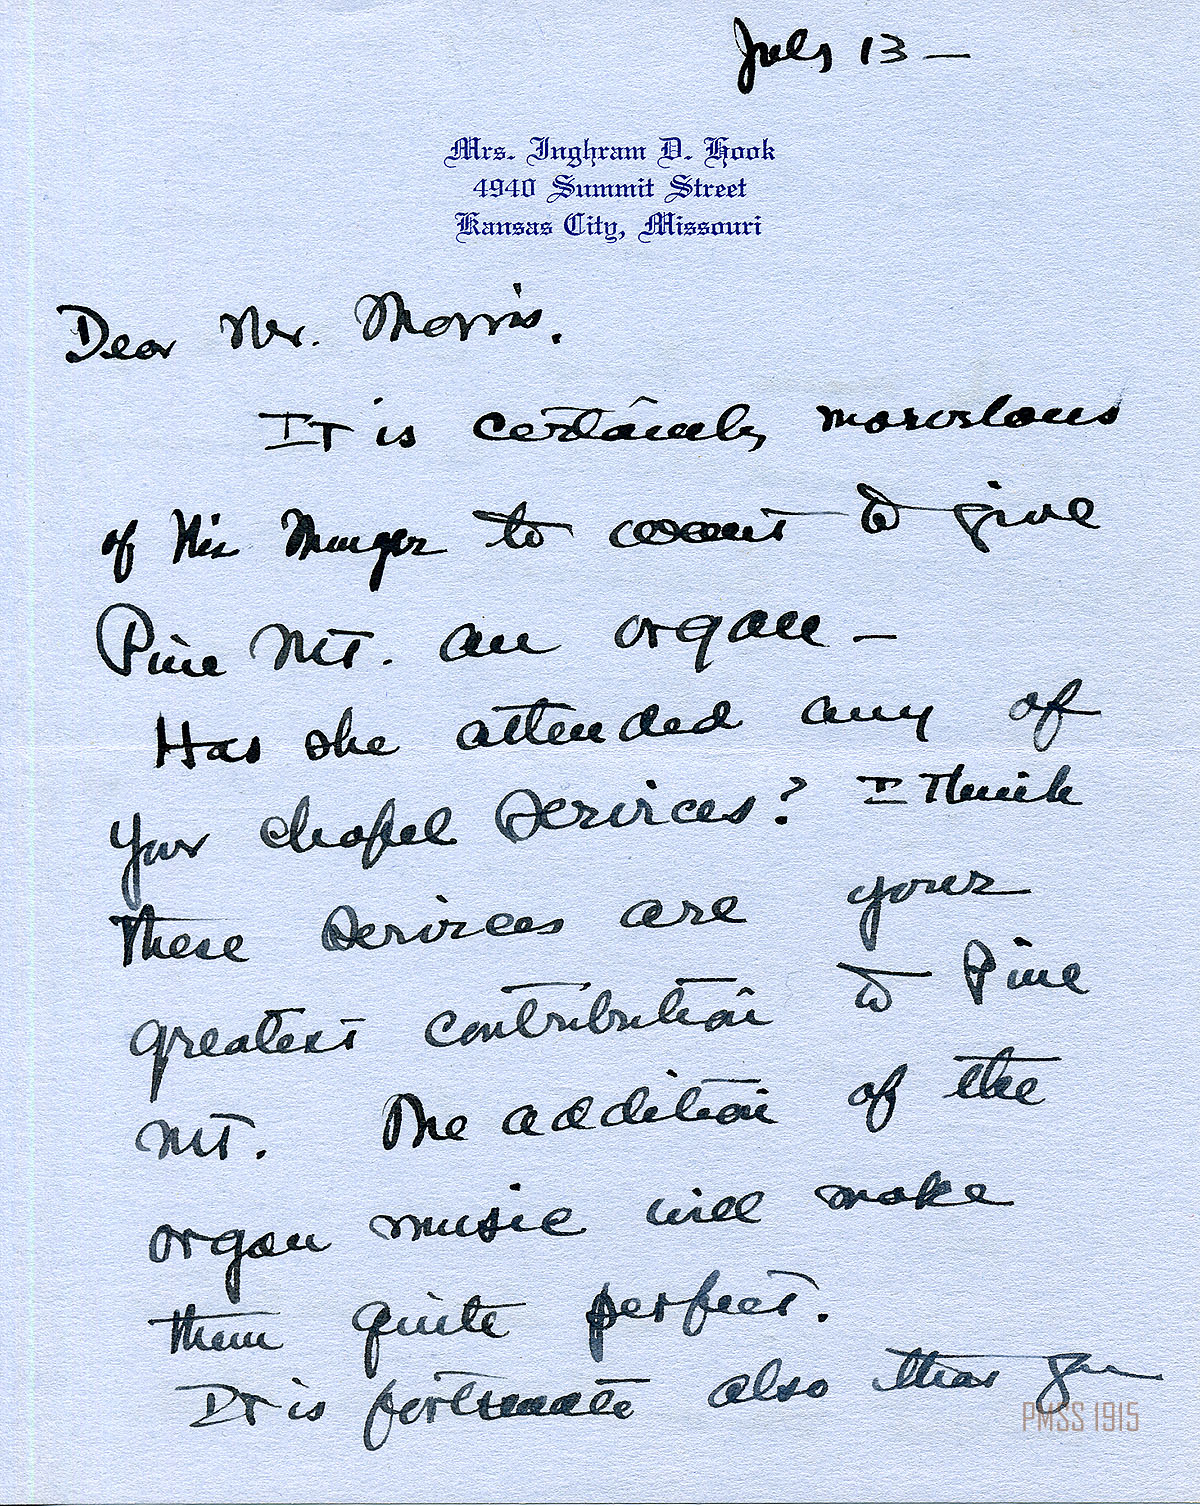 July 13 —
Mrs. Inghram D. Hook
4940 Summit Street
Kansas City, Missouri
Dear Mr. Morris.
It is certainly marvelous
of Mis Munger to want to give
Pine Mt. an organ —
Has she attended any of
your chapel services? I think
these services are your
greatest contribution to Pine
Mt. The addition of the
organ music will make
them quite perfect.
It is fortunate also that you
PMSS 1915